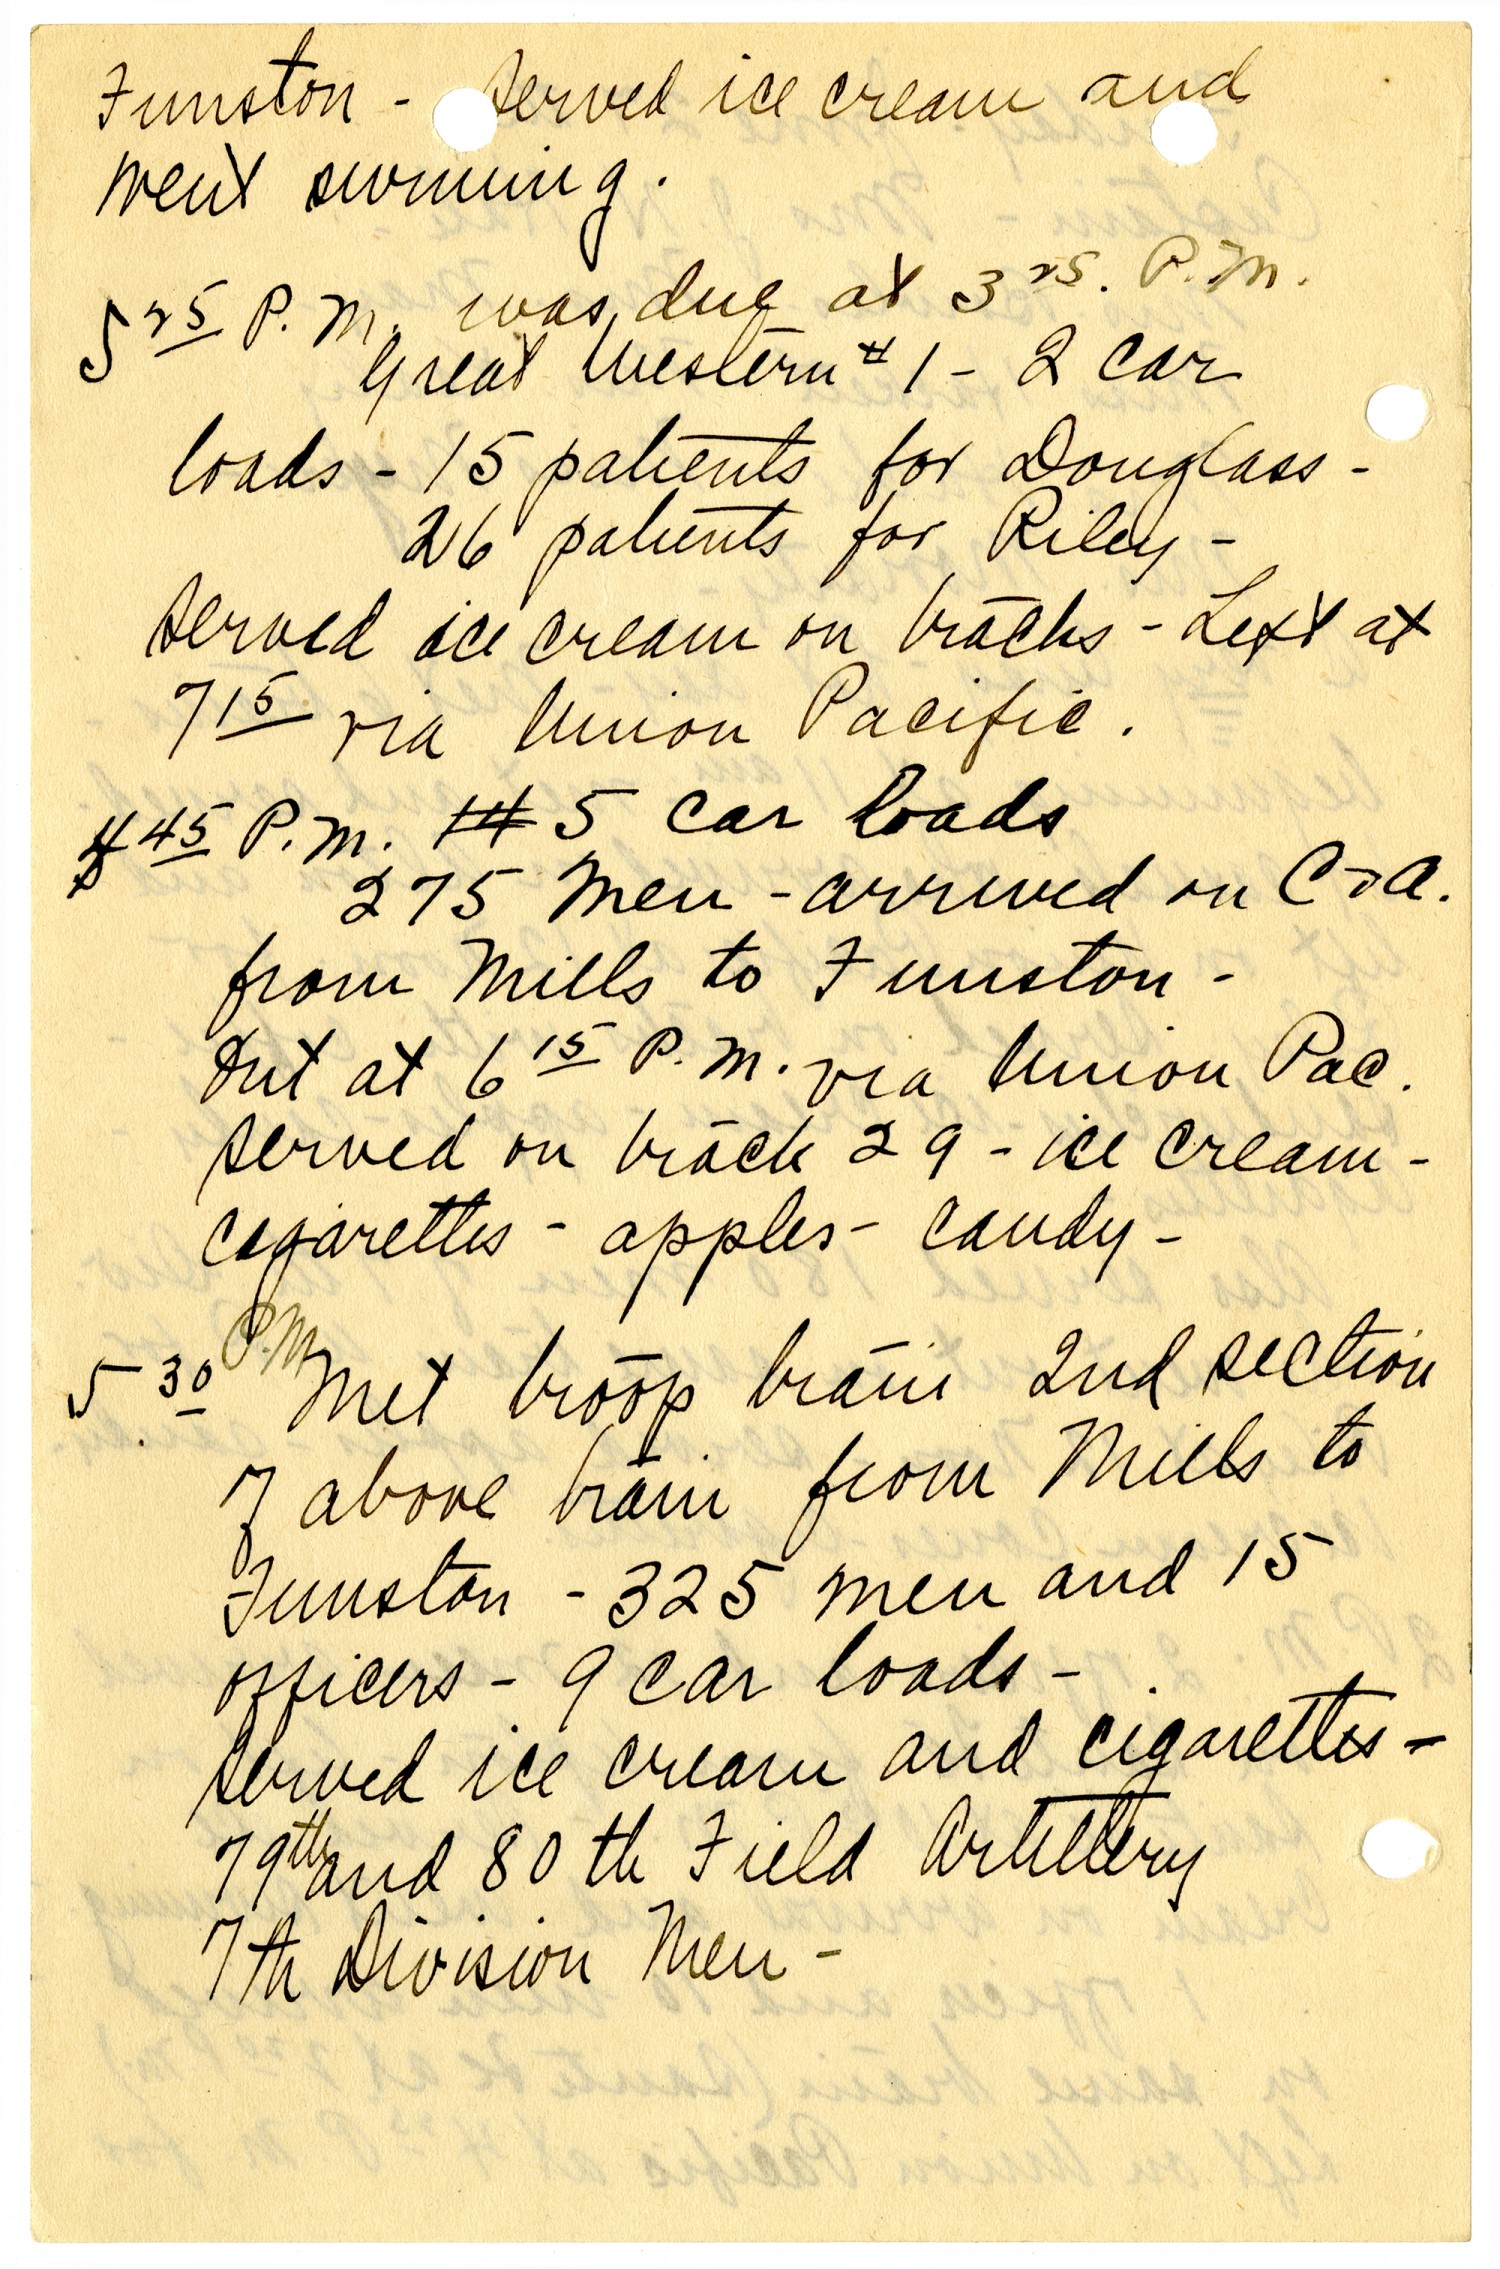 Funston - served ice cream and
went swimming.
5 25 P.M. was due at 3 25. P.M.
Great Western #1 - 2 car
loads - 15 patients for Douglass -
26 patients for Riley -
served ice cream on tracks - Left at
7 15 via Union Pacific.
45 P.M. 5 car loads
275 Men - arrived on C & A.
from Mills to Funston -
Out at 6 15 P.M. via Union Pac.
served on track 29 - ice cream -
cigarettes - apples - candy -
5 30 P.M. Met troop train 2nd section
of above train from Mills to
Funston - 325 men and 15
officers - 9 car loads -
served ice cream and cigarettes -
79th and 80th Field Artillery
7th Division Men -